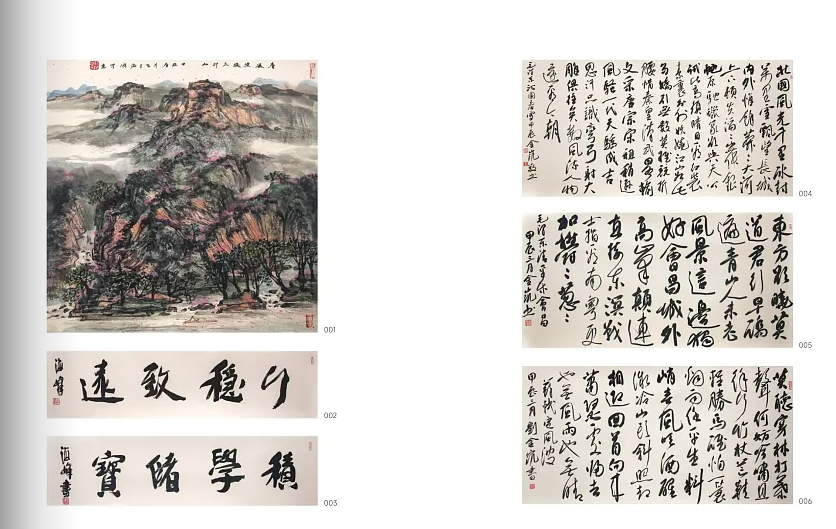 001
行穩致遠
海峰
002
積學儲寶
海峰書
003
北國風光千里冰封
萬里雪飄望長城
內外惟餘莽莽大河
上下頓失滔滔山舞銀
蛇原馳蠟象欲與天公
試比高須晴日看紅裝
素裹分外妖嬈江山如此
多嬌引無數英雄競折
腰惜秦皇漢武略輸
文采唐宗宋祖稍遜
風騷一代天驕成吉
思汗只識彎弓射大
雕俱往矣數風流人物
還看今朝
毛澤東沁園春雪甲辰金凱書
004
東方欲曉莫
道君行早踏
遍青山人未老
風景這邊獨
好會昌城外
高峰顛連
直接東溟戰
士指看南粵更
加鬱〻蔥〻
毛澤東清平樂會昌
甲辰三月金凱書
005
莫聽穿林打葉
聲何妨吟嘯且
徐行竹杖芒鞋
輕勝馬誰怕一蓑
煙雨任平生料
峭春風吹酒醒
微冷山頭斜照卻
相迎回首向來
蕭瑟處歸去
也無風雨也無晴
蘇軾定風波
甲辰三月劉金凱書
006